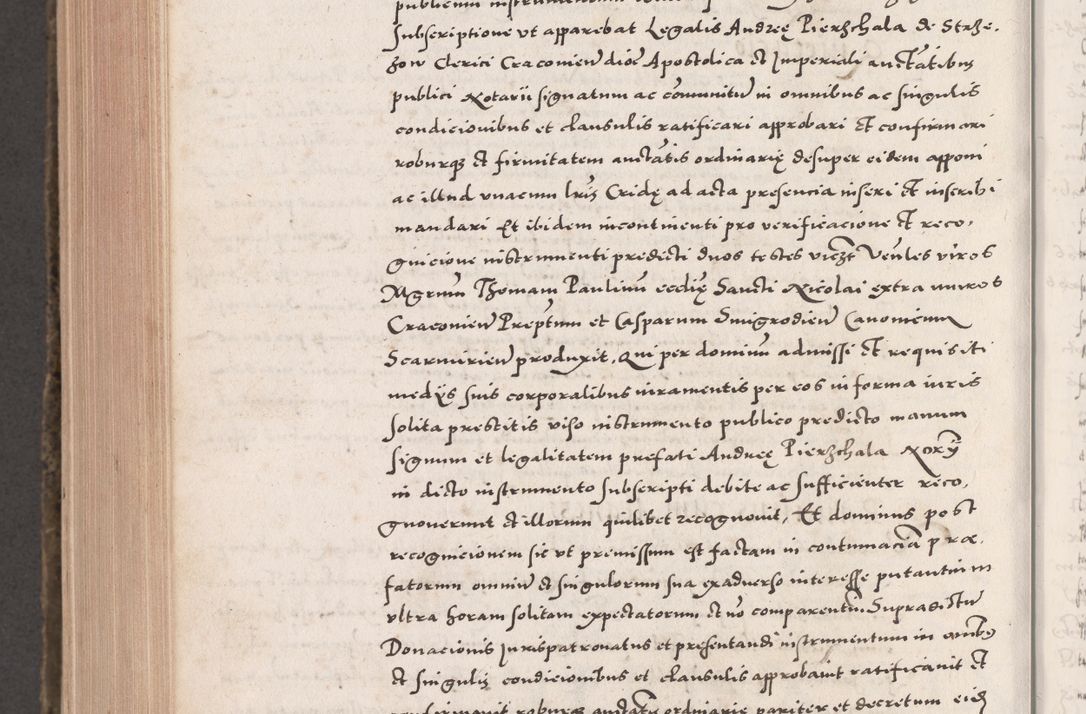 publicum instrumentum
subscriptione vt apparebat Legalis Andreę Pierzchala de Strze,
zow Clerici Cracovien dioc Apostolica et Imperiali auctatibus
publici Notarii signatum ac comunitu in omnibus ac singulis
condicionibus et clausulis ratificari approbari et confirmari
roburq et firmitatem auctatis ordinarię desuper eidem apponi
ac illud vnacum lris Cridę ad acta presencia inseri et inscribi
mandari Et ibidem incontinenti pro verificacione et reco,
gnicione instrumenti predicti duos testes viczt Venles viros
Mgrum Thomam Paulinu ecclię Sancti Nicolai extra muros
Cracovien Preptum et Casparum Smigrodien Canonicum
Scarmirien produxit, Qui per dominu admissi et requisiti
medys suis corporalibus iuramentis per eos in forma iuris
solita prestitis viso instrumento publico predicto manum
signum et legalitatem prefati Andreę Pierzchala Nory
in dicto instrumento subscripti debite ac sufficienter reco,
gnoverunt et illorum quilibet recognouit, Et dominus post
recognicionem sic vt premissum est factam in contumacia præ,
fatorum omniu et singulorum sua exaduerso interesse putantium
vltra horam solitam expectatorum et no comparentiu Supradictu
Donacionis Jurispatronatus et presentandi instrumentum in omnibus
et singulis condicionibus et clausulis approbauit ratificauit et
confirmauit roburq auctatis ordinarie pariter et decretum eidem